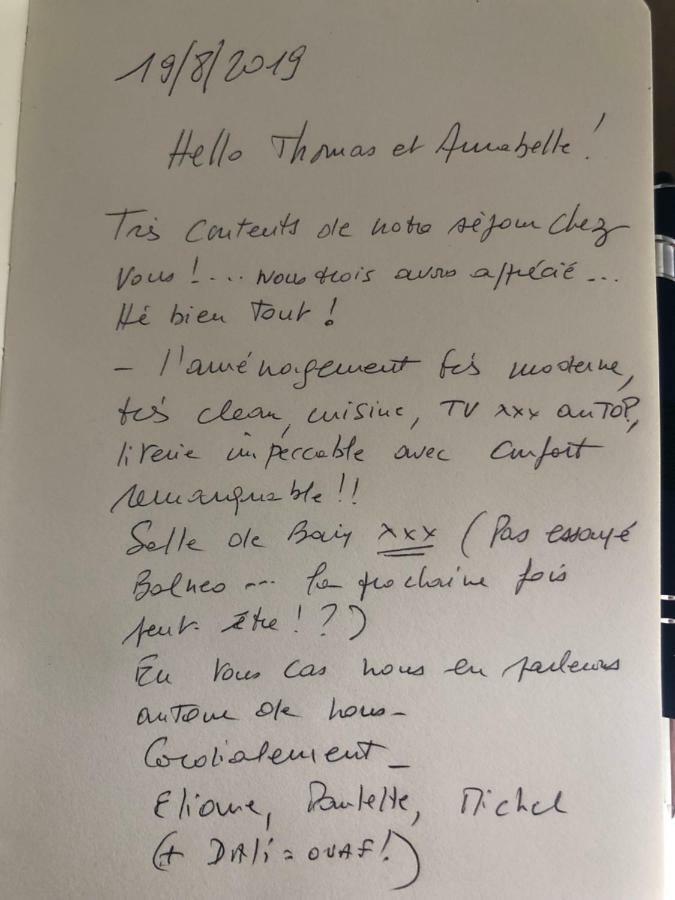 19/8/2019
Hello Thomas et Annabelle !
Très contents de notre séjour chez
vous ! ... nous trois avons apprécié ...
Hé bien Tout !
- l'aménagement très moderne,
très clean, cuisine, TV xxx auto
literie impeccable avec confort
remarquable !!
Salle de Bain xxx (Pas essayé
Balneo --- la prochaine fois
peut-être ! ?)
En tous cas nous en parlerons
autour de nous -
Cordialement -
Eliane, Paulette, Michel
(+ DAli = OUAF !)